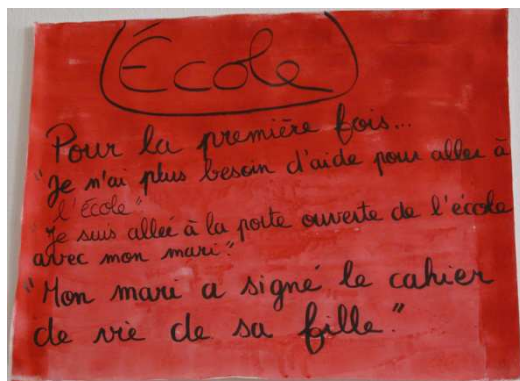 École
Pour la première fois...
"Je n'ai plus besoin d'aide pour aller à
l'École"
"Je suis allée à la porte ouverte de l'école
avec mon mari."
"Mon mari a signé le cahier
de vie de sa fille."